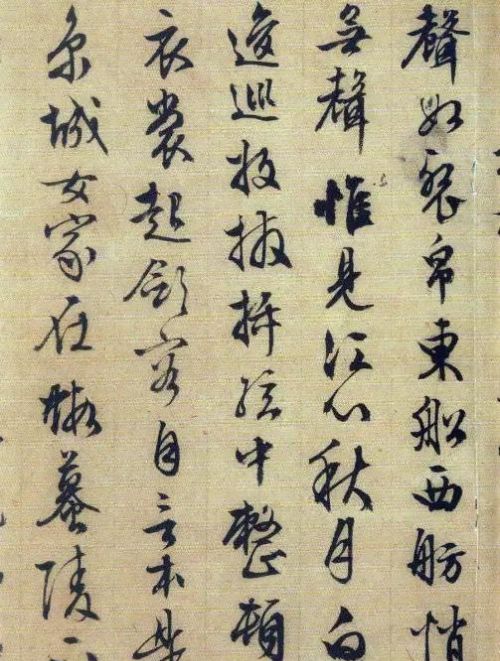 聲如裂帛東船西舫悄
無聲惟見江心秋月白
逡巡收撥插弦中整頓
衣裳起斂容自言本是
京城女家在蝦蟇陵下